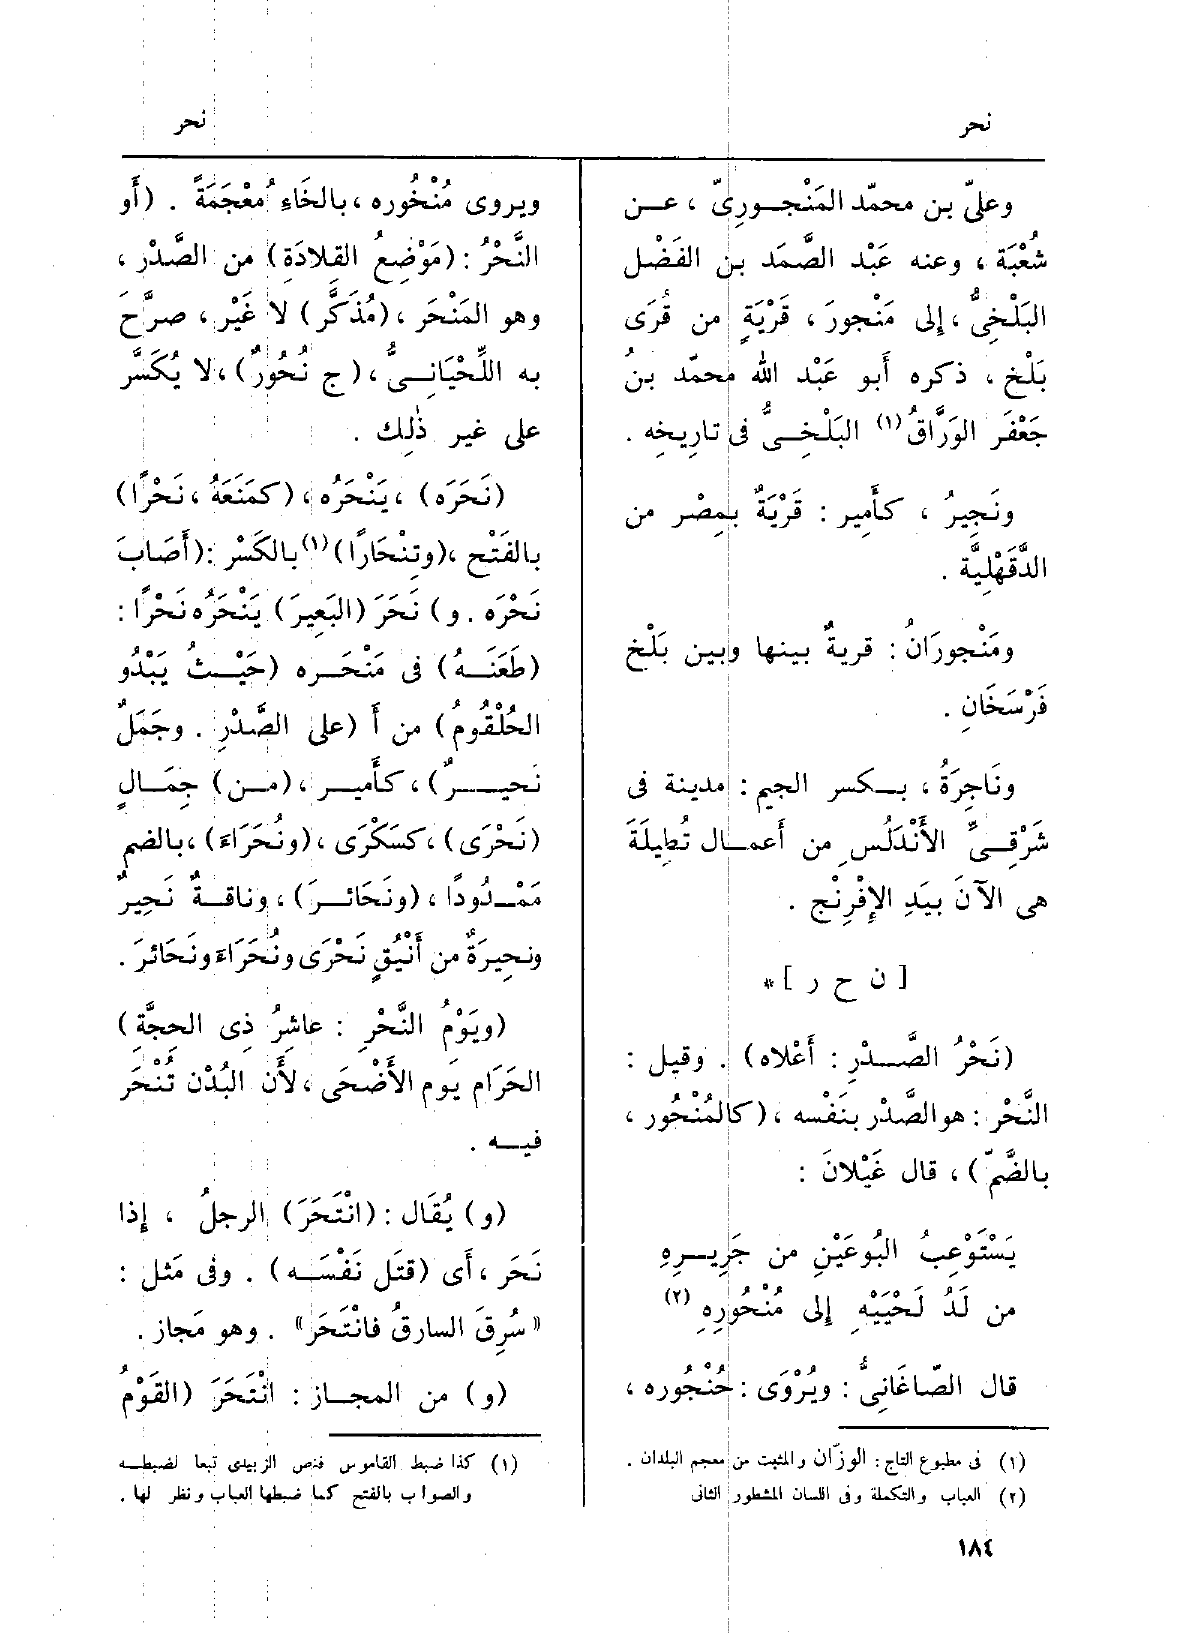 نحر
نحر
وعلىّ بن محمّد المَنْجورِىّ ، عن
شُعْبَة ، وعنه عَبْد الصَّمَد بن الفَضْل
البَلْخِىُّ ، إلى مَنْجورَ ، قَرْيَةٍ من قُرَى
بَلْخ ، ذكره أبو عَبْد الله محمّد بنُ
جَعْفَر الوَرَّاقُ(١) البَلْخِىُّ فى تاريخِه .
ونَجِيرُ ، كأَمِير : قَرْيَةٌ بمِصْر من
الدَّقَهْلِيَّة .
ومَنْجورَانُ : قريةٌ بينها وبين بَلْخ
فَرْسَخَانِ .
ونَاجِرَةُ ، بكسر الجيم : مدينة فى
شَرْقِىِّ الأَنْدَلُس من أَعمال تُطِيلَةَ
هى الآنَ بيَدِ الإِفْرِنْج .
[ ن ح ر ] *
(نَحْرُ الصَّدْرِ : أَعْلاه) . وقيل :
النَّحْر : هو الصَّدْر بنَفْسه ، (كالمُنْحُور ،
بالضَّمّ) ، قال غَيْلانَ :
يَسْتَوْعِبُ البُوعَيْنِ من جَرِيرِهِ
من لَدُ لَحْيَيْهِ إلى مُنْحُورِهِ (٢)
قال الصّاغَانِىُّ : ويُرْوَى : حُنْجُوره ،
(١) فى مطبوع التاج : الوزّان والمثبت من معجم البلدان .
(٢) العباب والتكملة وفى اللسان المشطور الثانى
ويروى مُنْخُوره ، بالخَاءِ مُعْجَمَةً . (أَو
النَّحْرُ : (مَوْضِع القِلادَة) من الصَّدْر ،
وهو المَنْحَر ، (مُذَكَّر) لا غَيْر ، صرَّحَ
به اللِّحْيَانِىُّ ، (ج نُحُورٌ) ، لا يُكَسَّر
على غير ذٰلِك .
(نَحَرَه) ، يَنْحَرُه ، (كمَنَعَهُ ، نَحْرًا)
بالفَتْح ، (وتِنْحَارًا)(١) بالكَسْر : (أَصَابَ
نَحْرَه . و) نَحَرَ (البَعِيرَ) يَنْحَرُه نَحْرًا :
(طَعَنَهُ) فى مَنْحَره (حَيْثُ يَبْدُو
الحُلْقُومُ) من أَ (على الصَّدْرِ . وجَمَلٌ
نَحِيرٌ) ، كأَمِير ، (من) جِمَالٍ
(نَحْرَى) ، كسَكْرَى ، (ونُحَرَاءَ) ، بالضم
مَمْدُودًا ، (ونَحَائِرَ) ، وناقةٌ نَحِيرٌ
ونحِيرَةٌ من أَنْيُقٍ نَحْرَى ونُحَرَاءَ ونَحَائرَ .
(ويَوْمُ النَّحْرِ : عاشِرُ ذِى الحِجَّةِ)
الحَرَام يَوم الأَضْحَى ، لأَن البُدْن تُنْحَر
فيه .
(و) يُقَال : (انْتَحَرَ) الرجلُ ، إذا
نَحَر ، أَى (قتَل نَفْسَه) . وفى مَثل :
« سُرِقَ السارقُ فانْتَحَرَ » . وهو مَجاز .
(و) من المجاز : انْتَحَرَ (القَوْمُ
(١) كذا ضبط القاموس فنص الزبيدى تبعا لضبطه
والصواب بالفتح كما ضبطها العباب ونظر لها .
١٨٤